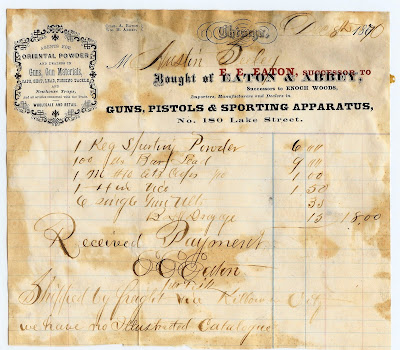 AGENCY FOR
ORIENTAL POWDER
AND DEALERS IN
Guns, Gun Materials,
CAPS, SHOT, LEAD, FISHING TACKLE,
AND
Newhouse Traps,
WHOLESALE AND RETAIL.
Chas. A. Eaton
Chicago, Dec 8th 1870
M Austin
Bought of E. F. EATON, SUCCESSOR TO
EATON & ABBEY,
SUCCESSORS TO ENOCH WOODS,
Importers, Manufacturers and Dealers in
GUNS, PISTOLS & SPORTING APPARATUS,
No. 180 Lake Street.
1 Keg Sporting Powder 6 00
100 lbs Bar Lead 9 00
1 M 1 00
1 Vice 1 50
6 Single Gun 35
Drayage 15 18.00
Received Payment
E F Eaton
Shipped by freight via City
we have no Illustrated Catalogue